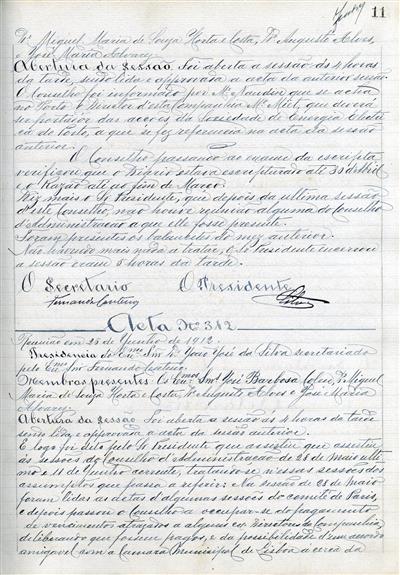 11
Dr. Miguel Maria de Souza Horta e Costa, Dr. Augusto Alves,
José Maria Alvarez
Abertura da Sessão. Foi aberta a sessão ás 4 horas
da tarde, sendo lida e approvada a acta da anterior sessão
O Conselho foi informado por Mr. Naudin que se achava
no Porto o Director d'esta Companhia Mr. Miet, que deverá
ser portador das acções da Sociedade de Energia Electri
ca do Porto, a que se fez referencia na acta da sessão
anterior.
O Conselho passando ao exame da escripta
verificou que o Diario estava escripturado até 30 d'Abril
e o Razão até ao fim de Março.
Diz mais o Sr. Presidente, que depois da ultima sessão
d'este Conselho, não houve reunião alguma do Conselho
d'Administração a que elle fosse presente.
Foram presentes os balancetes do mez anterior.
Não havendo mais nada a tratar, o Sr. Presidente encerrou
a sessão eram 5 horas da tarde.
O Secretario O Presidente
Fernando
Acta No. 312
Reunião em 25 de Junho de 1912.
Presidencia do Exmo. Snr. Dr. João José da Silva secretariado
pelo Exmo. Snr. Fernando
Membros presentes. Os Exmos. Snrs. José Barbosa Colen, Dr. Miguel
Maria de Souza Horta e Costa, Dr. Augusto Alves e José Maria
Alvarez
Abertura da Sessão. Foi aberta a sessão ás 4 horas da tarde
sendo lida e approvada a acta da sessão anterior.
E logo foi dito pelo Sr. Presidente que assistiu
ás sessões do Conselho d'Administração de 28 de Maio ultimo
e 11 de Junho corrente, tratando-se n'essas sessões dos
assumptos que passa a referir: Na sessão de 28 de Maio
foram lidas as actas d'algumas sessões do comité de Paris,
e depois passou o Conselho a occupar-se do pagamento
de vencimentos atrazados a alguns ex Directores da Companhia,
deliberando que fossem pagos, e da possibilidade d'um accordo
amigavel com a Camara Municipal de Lisboa ácerca da